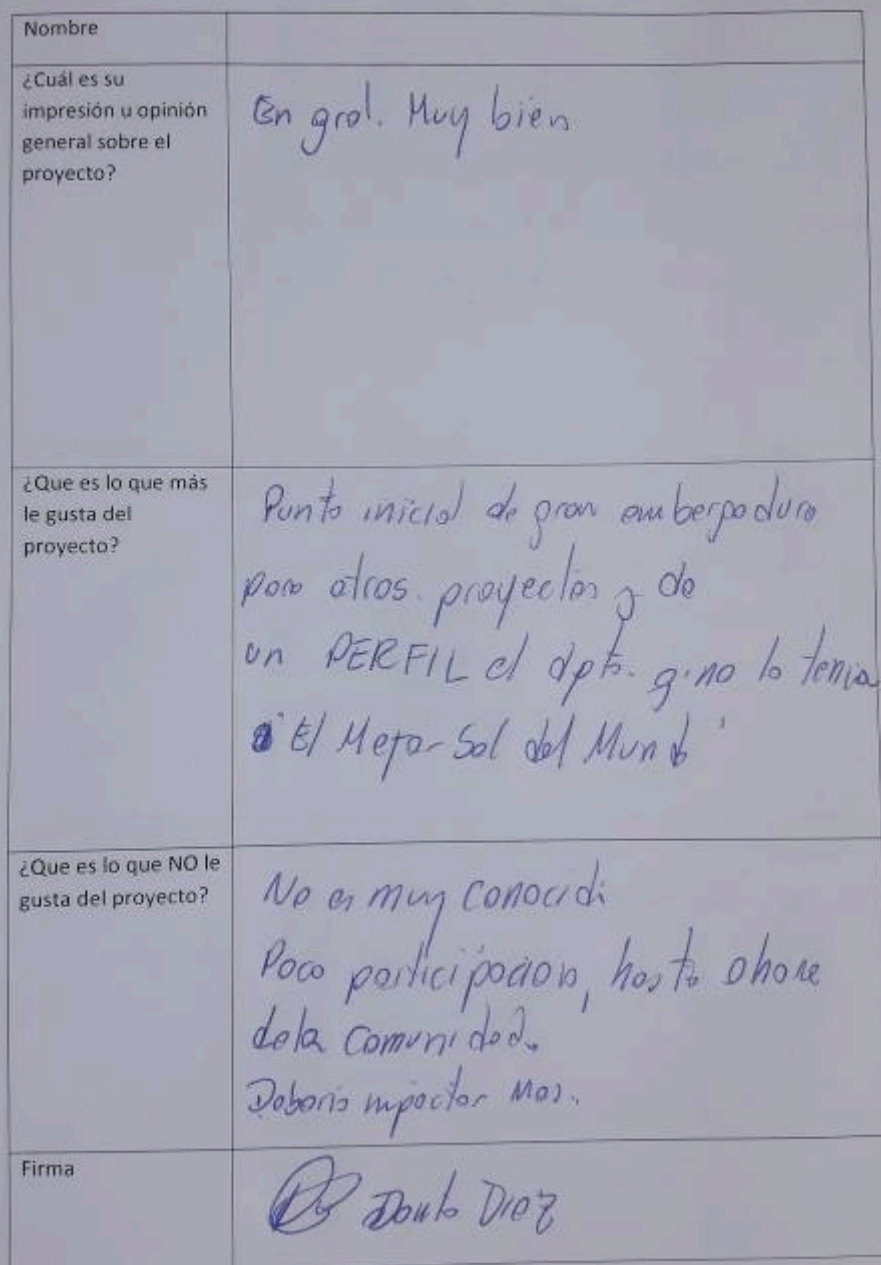 Nombre
¿Cuál es su
impresión u opinión
general sobre el
proyecto?
En gral. Muy bien
¿Que es lo que más
le gusta del
proyecto?
Punto inicial de gran embergadura
para otros proyectos y de
un PERFIL el dpto. q. no lo tenia
"El Mejor Sol del Mundo"
¿Que es lo que NO le
gusta del proyecto?
No es muy conocido
Poco participacion, hasta ahora
de la Comunidad.
Deberia impactar Mas.
Firma
Diez